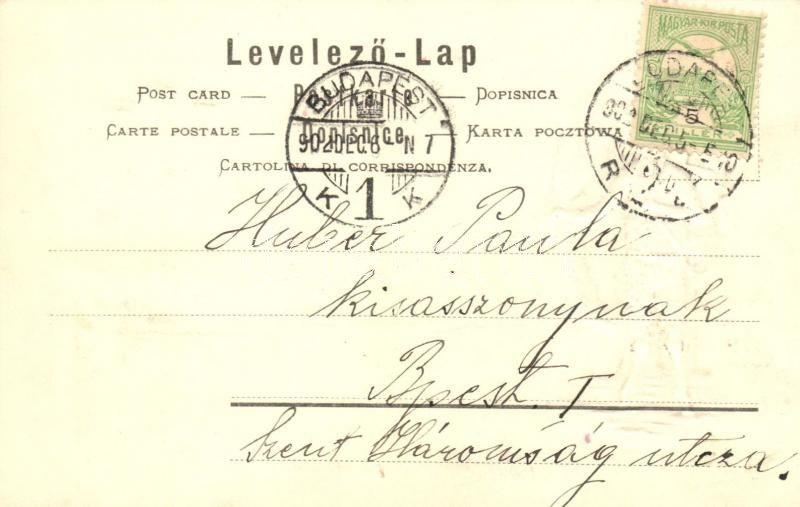 MAGYAR KIR. POSTA
5
Levelező-Lap
POST CARD — — DOPISNICA
CARTE POSTALE — Dopisnice — KARTA POCZTOWA
CARTOLINA DI CORRISPONDENZA.
BUDAPEST
902 DEC. 6 N 7
K 1 K
Huber Paula
kisasszonynak
Bpest. I
Szent Háromság utcza.